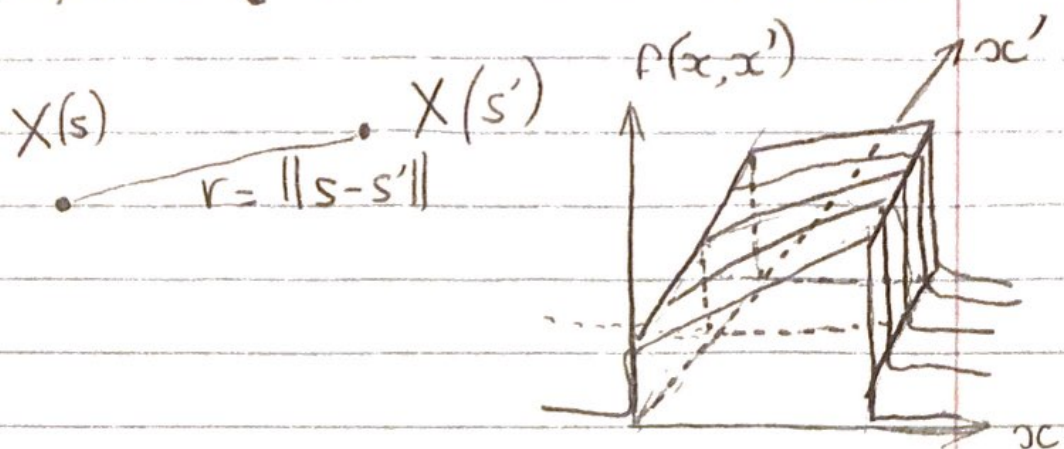 X(s)
X(s')
r = ||s-s'||
f(x,x')
x'
x